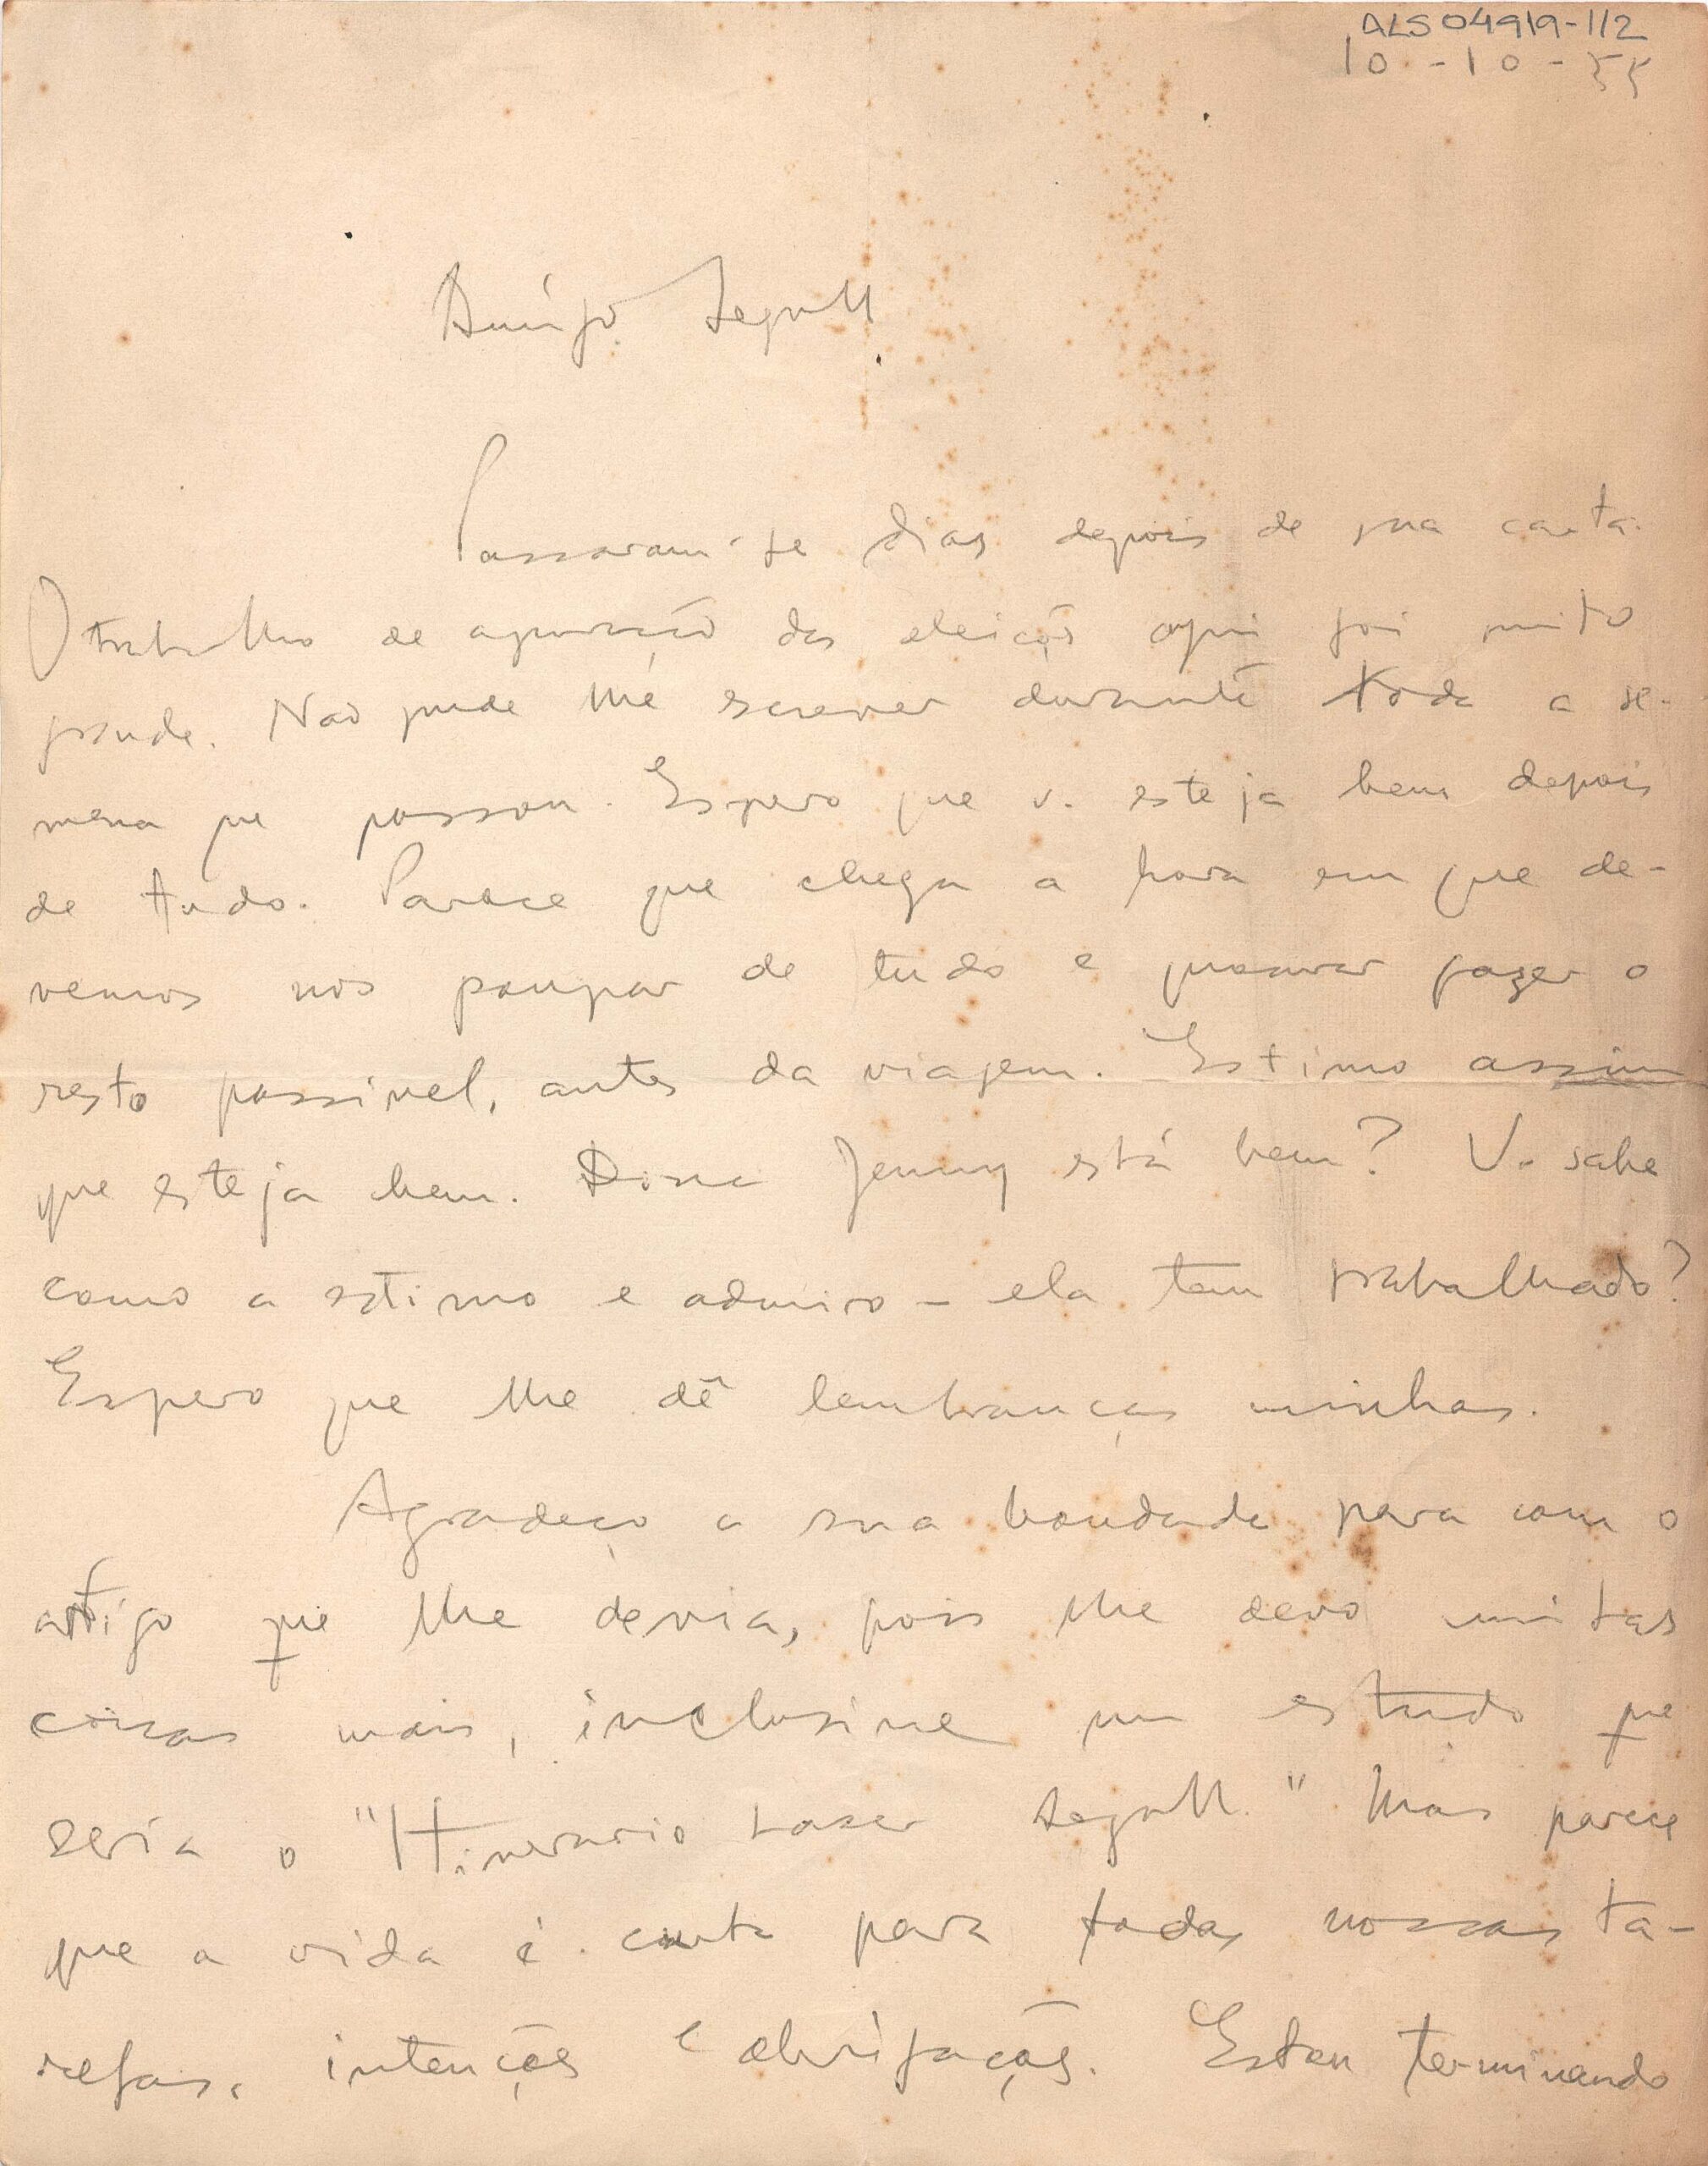 ALS 04919-1/2
10-10-55
Amigo Segall
Passaram-se dias depois de sua carta.
O trabalho de apuração das eleições aqui foi muito
grande. Não pude lhe escrever durante toda a se-
mana que passou. Espero que v. esteja bem depois
de tudo. Parece que chega a hora em que de-
vemos nos poupar de tudo e procurar fazer o
resto possivel, antes da viagem. Estimo assim
que esteja bem. Dona Jenny está bem? V. sabe
como a estimo e admiro - ela tem trabalhado?
Espero que lhe dê lembranças minhas.
Agradeço a sua bondade para com o
artigo que lhe devia, pois lhe devo muitas
coisas mais, inclusive um estudo que
seria o "Itinerario Lasar Segall." Mas parece
que a vida é curta para todas nossas ta-
refas, intenções e obrigações. Estou terminando